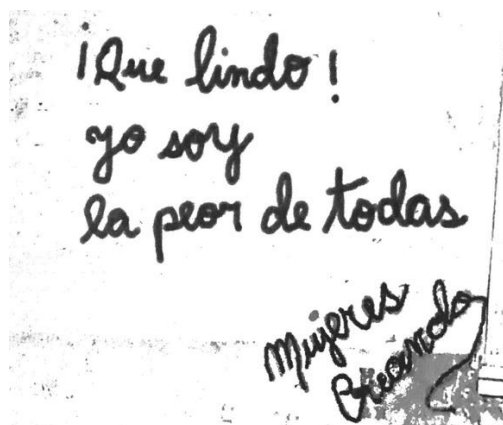 ¡Que lindo!
yo soy
la peor de todas
Mujeres
Creando